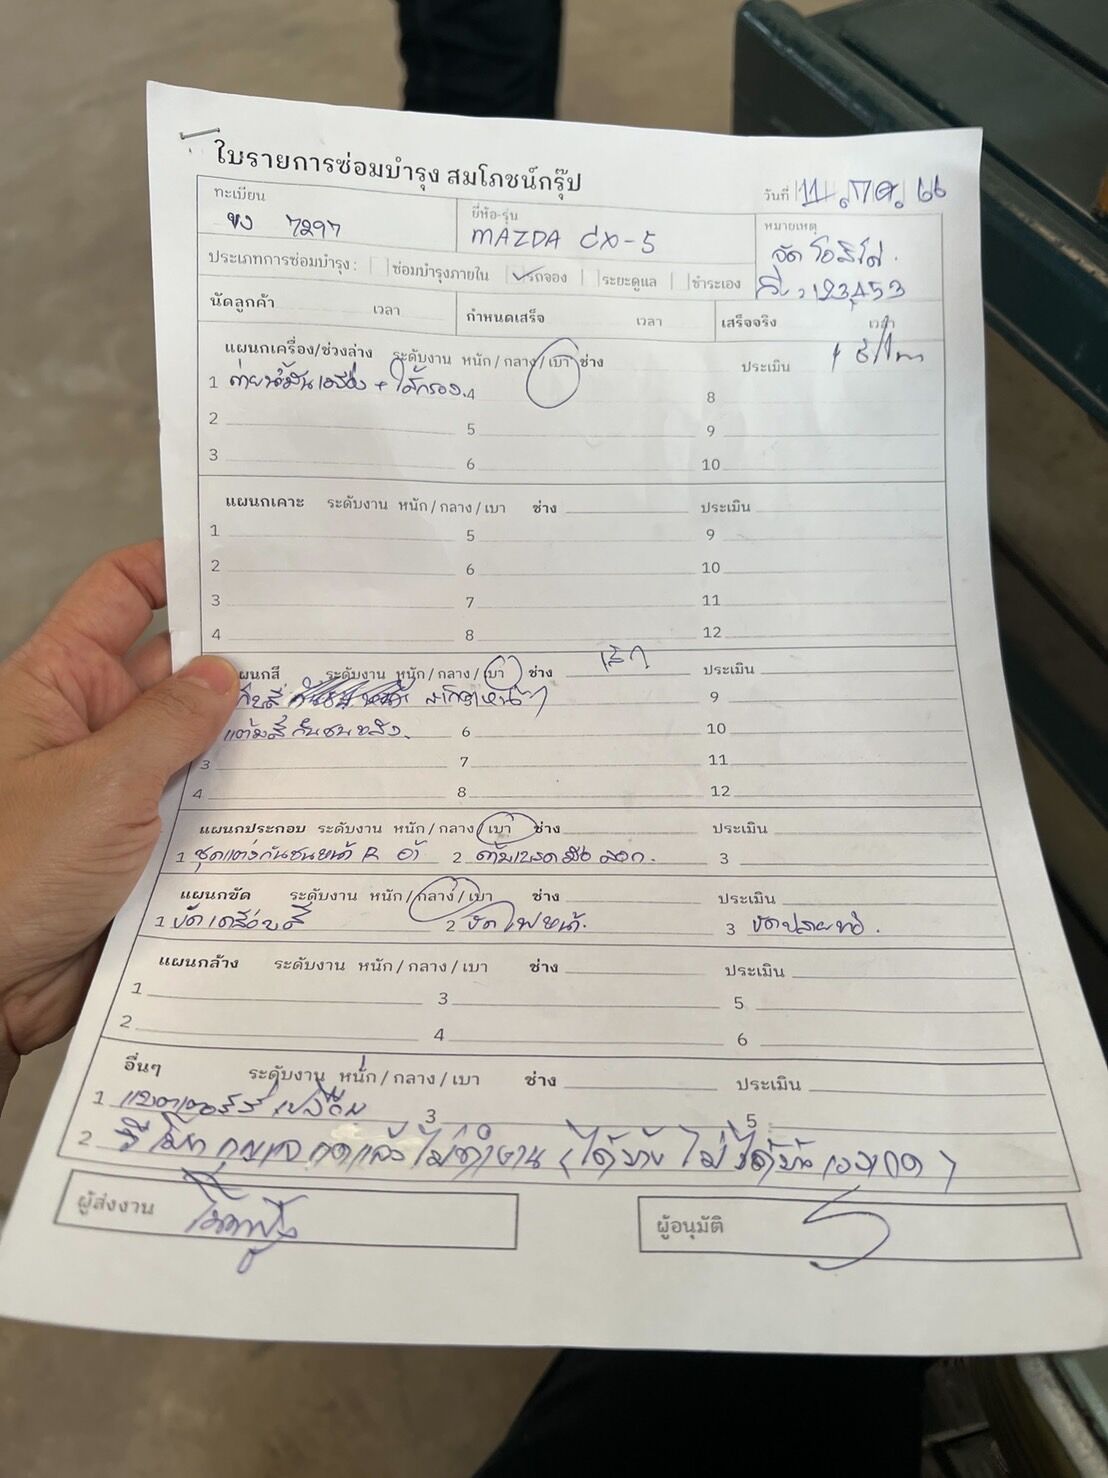 ใบรายการซ่อมบำรุง สมโภชน์กรุ๊ป
วันที่ 11 ก.ค. 66
ทะเบียน
ขง 7297
ยี่ห้อ-รุ่น
MAZDA CX-5
หมายเหตุ
123,453
ประเภทการซ่อมบำรุง : ซ่อมบำรุงภายใน ✓ รถจอง ระยะดูแล ชำระเอง
นัดลูกค้า เวลา กำหนดเสร็จ เวลา เสร็จจริง เวลา
แผนกเครื่อง/ช่วงล่าง ระดับงาน หนัก / กลาง / เบา ช่าง ประเมิน
1 ถ่ายน้ำมันเครื่อง + ไส้กรอง 4 8
2 5 9
3 6 10
แผนกเคาะ ระดับงาน หนัก / กลาง / เบา ช่าง ประเมิน
1 5 9
2 6 10
3 7 11
4 8 12
ผนกสี ระดับงาน หนัก / กลาง / เบา ช่าง เล็ก ประเมิน
9
แต้มสีกันชนหลัง 6 10
3 7 11
4 8 12
แผนกประกอบ ระดับงาน หนัก / กลาง / เบา ช่าง ประเมิน
1 ชุดแต่งกันชนหน้า R อ้า 2 ด้ามเบรคมือ ลอก 3
แผนกขัด ระดับงาน หนัก / กลาง / เบา ช่าง ประเมิน
1 ขัดเคลือบสี 2 ขัดไฟหน้า 3 ขัดปลายท่อ
แผนกล้าง ระดับงาน หนัก / กลาง / เบา ช่าง ประเมิน
1 3 5
2 4 6
อื่นๆ ระดับงาน หนัก / กลาง / เบา ช่าง ประเมิน
1 แบตเตอรี่ 3 5
2 รีโมทกุญแจ กดแล้วไม่ทำงาน (ได้บ้าง ไม่ได้บ้าง
ผู้ส่งงาน
ผู้อนุมัติ